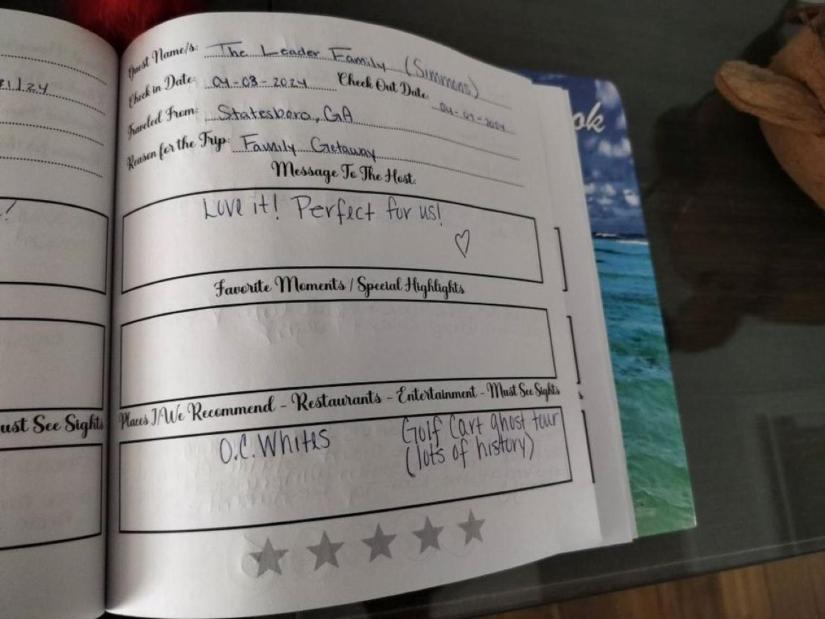 31/24
Guest Name/s: The Leader Family (Simmons)
Check in Date: 04-03-2024 Check Out Date:
Traveled From: Statesboro, GA
Reason for the Trip: Family Getaway
Message To The Host:
Love it! Perfect for us!
Favorite Moments / Special Highlights
ust See Sights
Places I/We Recommend - Restaurants - Entertainment - Must See Sights
O.C. Whites
Golf Cart ghost tour
(lots of history)
ok